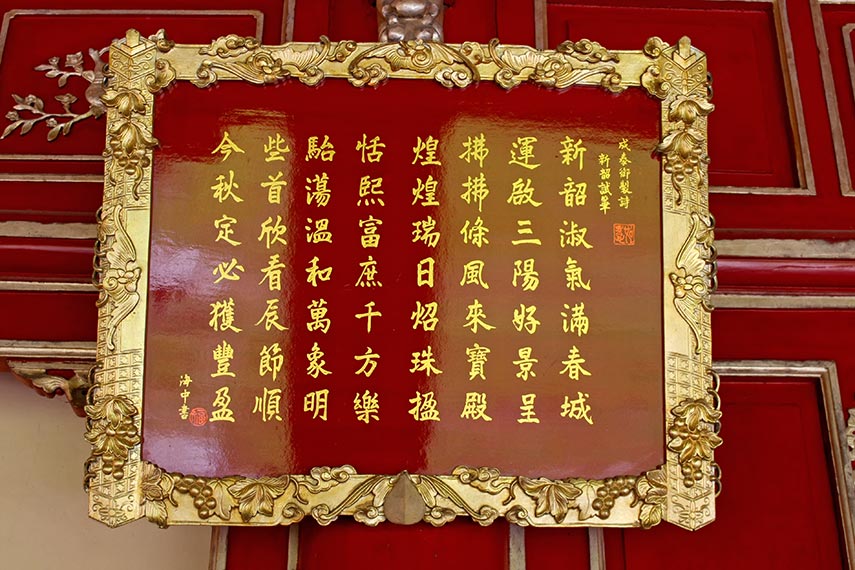 成泰御製詩
新韶試筆
新韶淑氣滿春城
運啟三陽好景呈
拂拂條風來寶殿
煌煌瑞日炤珠楹
恬熙富庶千方樂
駘蕩溫和萬象明
些首欣看辰節順
今秋定必獲豐盈
海中書